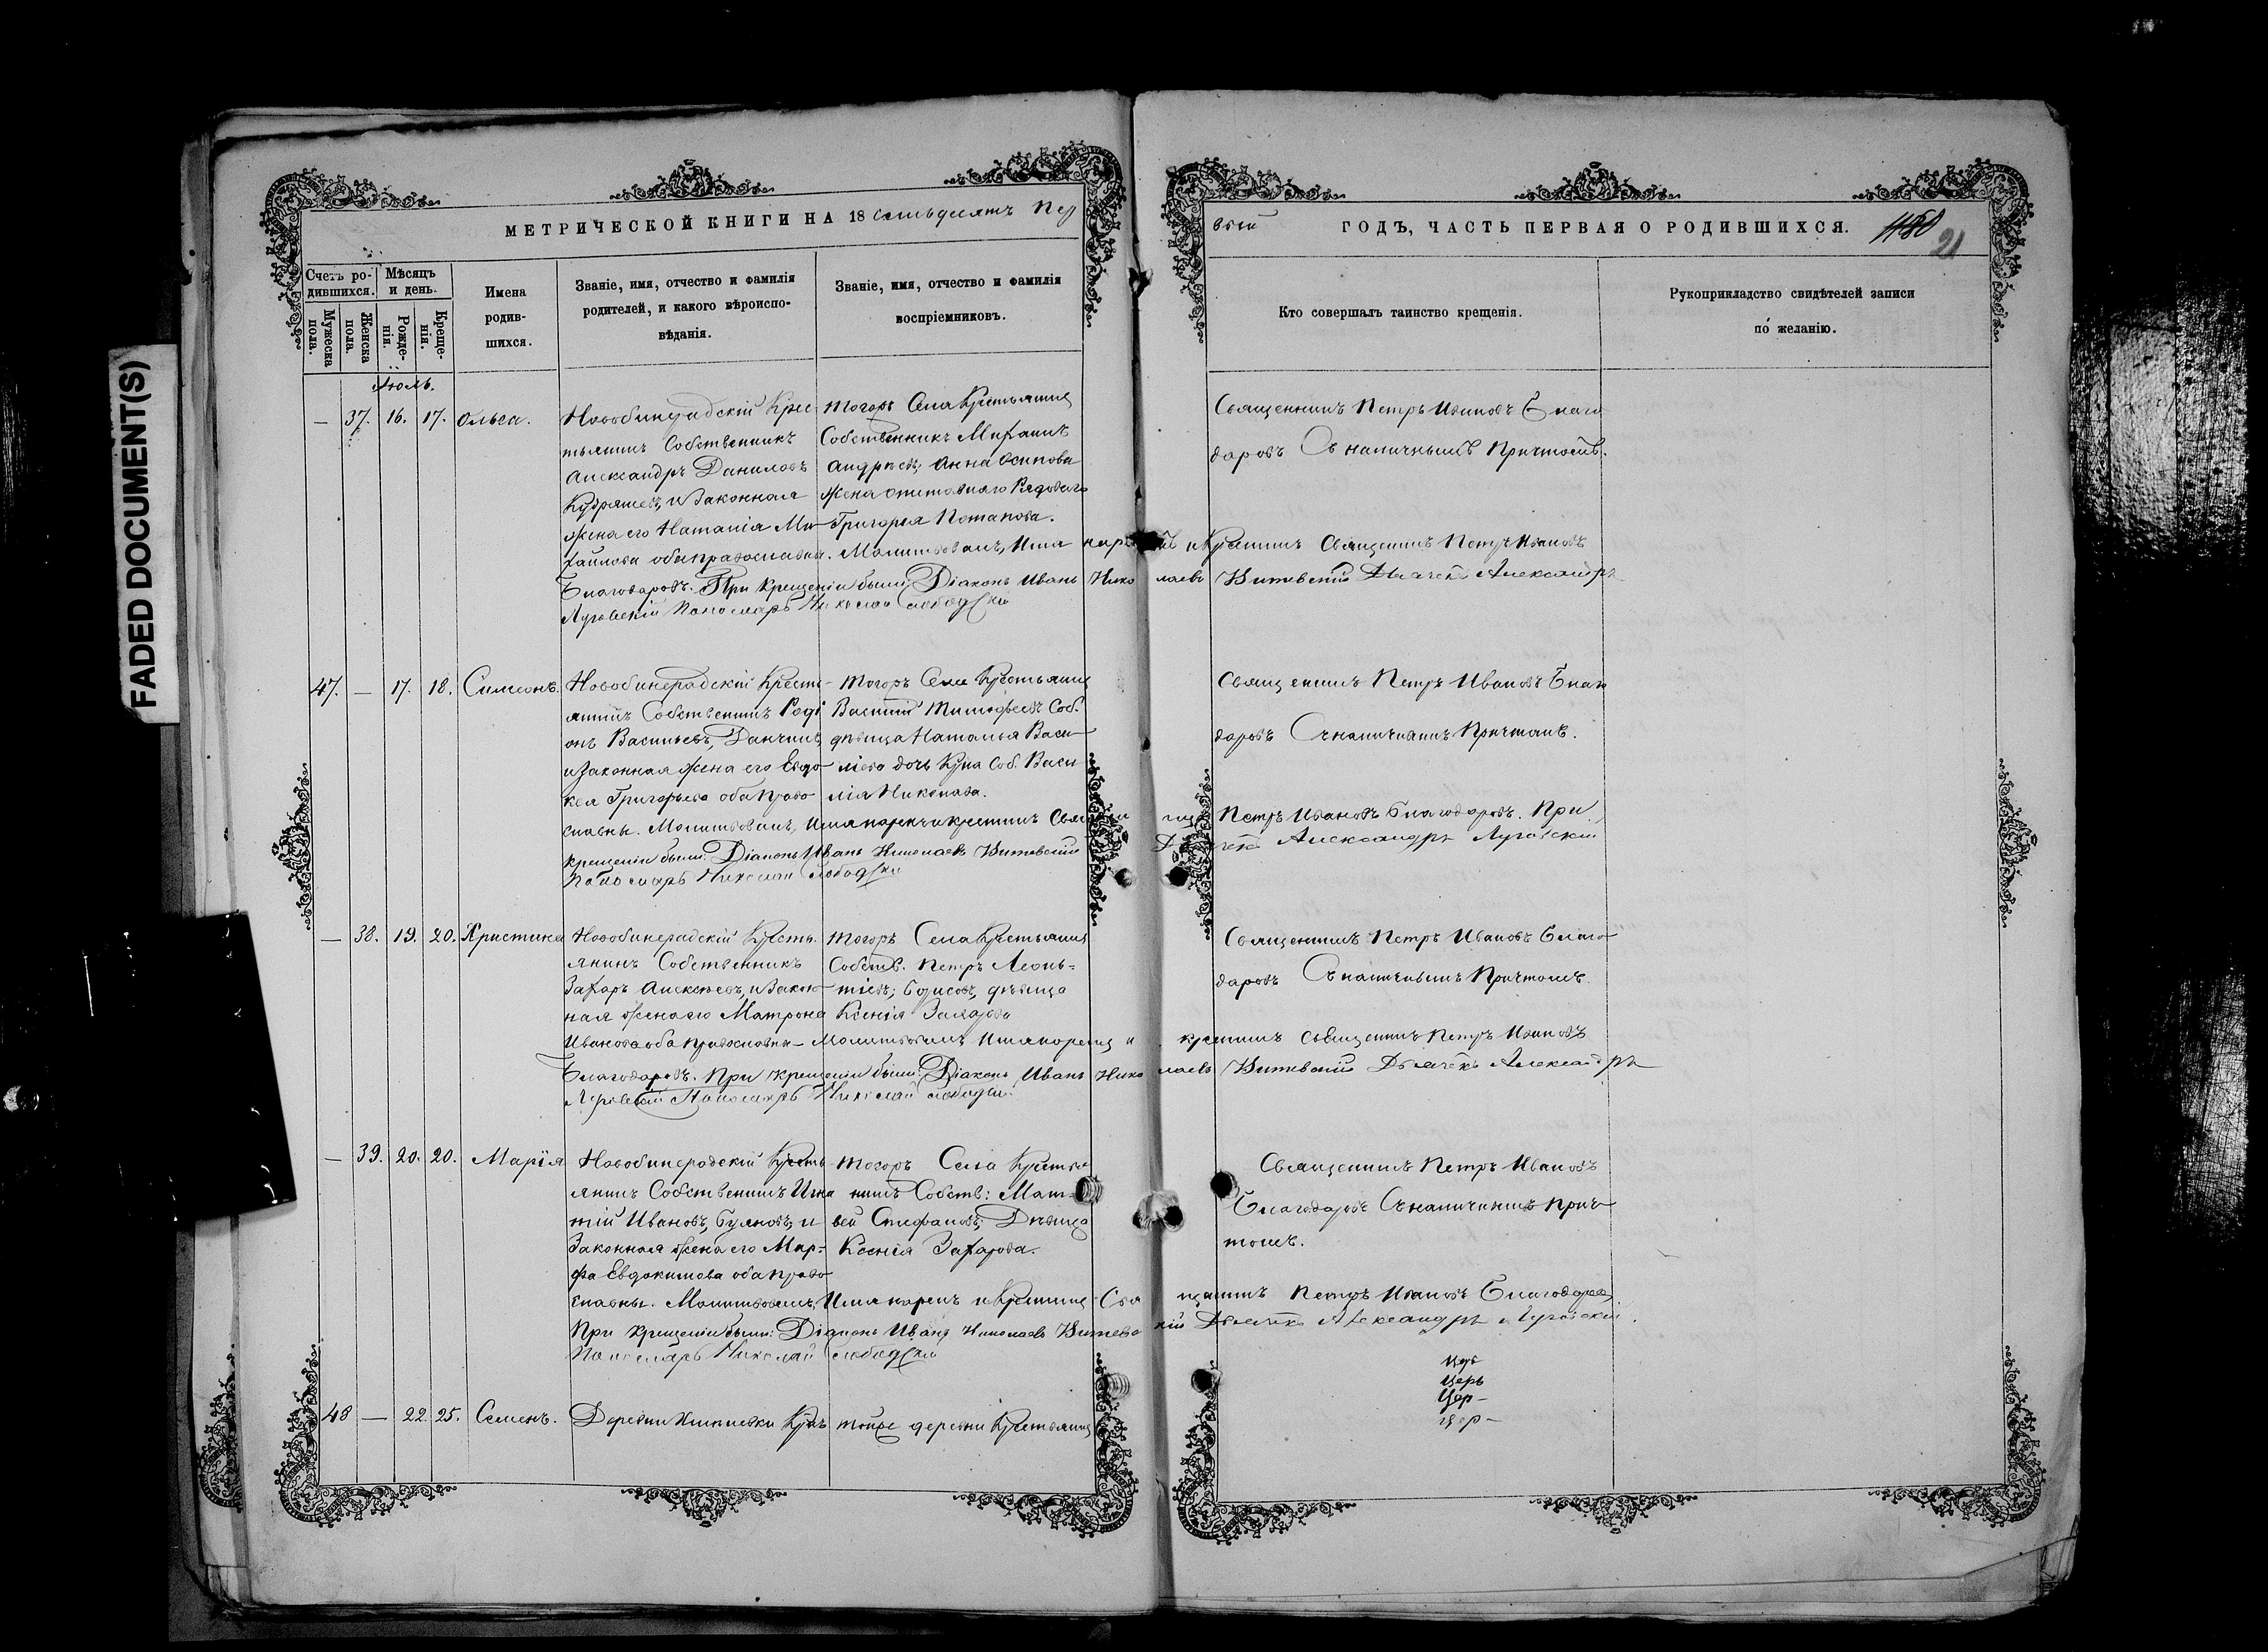 FADED DOCUMENT(S)
МЕТРИЧЕСКОЙ КНИГИ НА 18 семьдесятъ пер
вый ГОДЪ, ЧАСТЬ ПЕРВАЯ О РОДИВШИХСЯ.
21
Счетъ родившихся.
Мужеска пола.
Женска пола.
Мѣсяцъ и день.
Рожденія.
Крещенія.
Имена родившихся.
Званіе, имя, отчество и фамилія
родителей, и какого вѣроиспо-
вѣданія.
Званіе, имя, отчество и фамилія
воспріемниковъ.
Кто совершалъ таинство крещенія.
Рукоприкладство свидѣтелей записи
по желанію.
Июль.
— 37. 16. 17. Ольга.
Крес
тьянинъ Собственникъ
Александръ Даниловъ
Кудряшевъ, и Законная
жена его Наталія Ми-
хайлова оба православны. Молитвовалъ, Имя нарекъ и Крестилъ Священникъ Петръ Ивановъ
Благодаровъ. При крещеніи были: Діаконъ Иванъ Николаевъ Витевскій Дьячекъ Александръ
Луговскій Пономарь Николай Слободскій
Тогожъ Села Крестьянинъ
Собственникъ
Андреевъ, Анна Осипова
Жена Рядоваго
Григорія Потапова.
Священникъ Петръ Ивановъ Благо
даровъ Съ наличнымъ Причтомъ.
47. — 17. 18. Симеонъ.
Кресть-
янинъ Собственникъ Роді
онъ Васильевъ,
и Законная жена его Евдо-
кея Григорьева оба право
славны. Молитвовалъ, Имя нарекъ и крестилъ Священникъ Петръ Ивановъ Благодаровъ. При
крещеніи были: Діаконъ Иванъ Николаевъ Витевскій Дьячекъ Александръ Луговскій
Пономарь Николай Слободскій
Тогожъ Села Крестьянинъ
Василій Тимофеевъ Соб.
дѣвица Наталья Васи-
ліева дочь Соб. Васи
лія Никонова.
Священникъ Петръ Ивановъ Благо
даровъ Съ наличнымъ Причтомъ.
— 38. 19. 20. Христина
Кресть.
янинъ Собственникъ
Захаръ Алексѣевъ, и Закон
ная жена его Матрона
Иванова оба православны — Молитвовалъ Имя нарекъ и крестилъ священникъ Петръ Ивановъ
Благодаровъ. При крещеніи были: Діаконъ Иванъ Николаевъ Витевскій Дьячекъ Александръ
Луговскій Пономарь Николай Слободскій
Тогожъ Села Крестьянинъ
Собств. Петръ Леонь-
тіевъ, Борисовъ, дѣвица
Ксенія Захарова
Священникъ Петръ Ивановъ Благо-
даровъ Съ наличнымъ Причтомъ.
— 39. 20. 20. Марія
Кресть
янинъ Собственникъ Игна
тій Ивановъ, и
Законная жена его Мар-
фа Евдокимова оба право
славны. Молитвовалъ, Имя нарекъ и Крестилъ Священникъ Петръ Ивановъ Благодаровъ
При крещеніи были: Діаконъ Иванъ Николаевъ Витевскій Дьячекъ Александръ Луговскій.
Пономарь Николай Слободскій
Тогожъ Села Крестья
нинъ Собств: Мат-
вей Стефановъ, Дѣвица
Ксенія Захарова.
Священникъ Петръ Ивановъ
Благодаровъ Съ наличнымъ прич
томъ.
Церь
Цер-
цер-
48 — 22. 25. Семенъ.
Деревни
тойже деревни Крестьянинъ